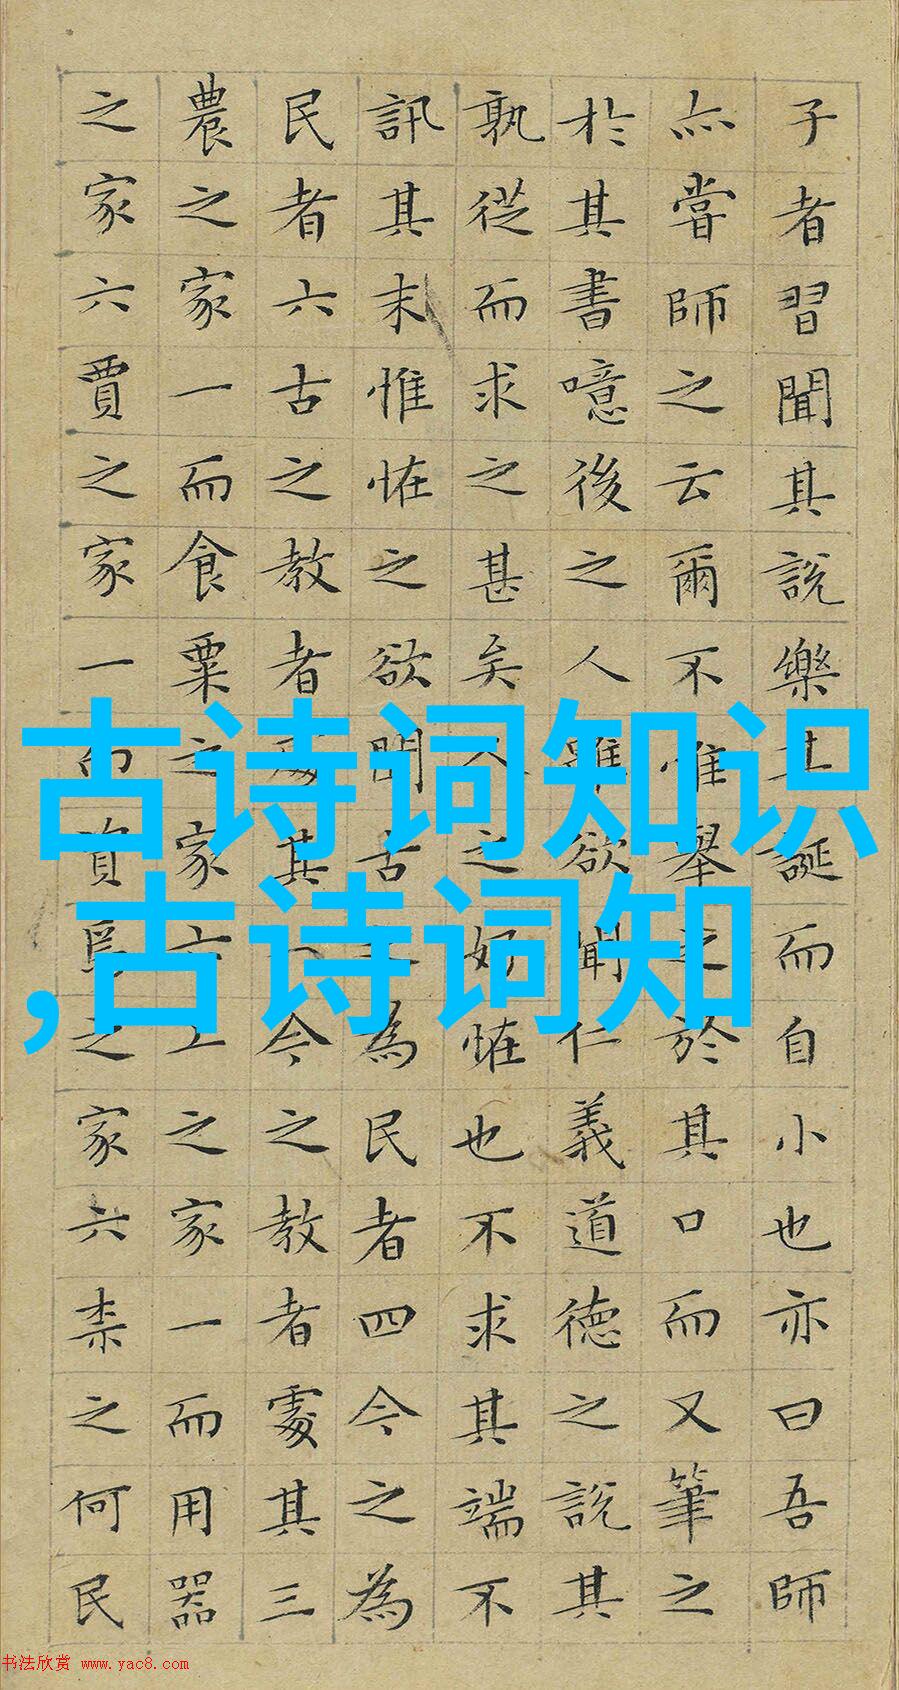 子者習聞其說樂其誕而自小也亦曰吾師
亦嘗師之云爾不惟舉之於其口而又筆之
於其書噫後之人雖欲聞仁義道德之說其
孰從而求之甚矣人之好恠也不求其端不
訊其末惟恠之欲聞古之為民者四今之為
民者六古之教者處其一今之教者處其三
農之家一而食粟之家六工之家一而用器
之家六賈之家一而資焉之家六柰之何民
古诗词知识
,古诗词知
书法欣赏 www.yac8.com